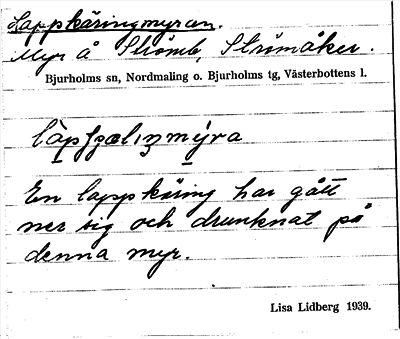 Lappkäringmyran.
Myr å Strömb, Strömåker.
Bjurholms sn, Nordmaling o. Bjurholms tg, Västerbottens l.
En lappkäring har gått
ner sig och drunknat på
denna myr.
Lisa Lidberg 1939.